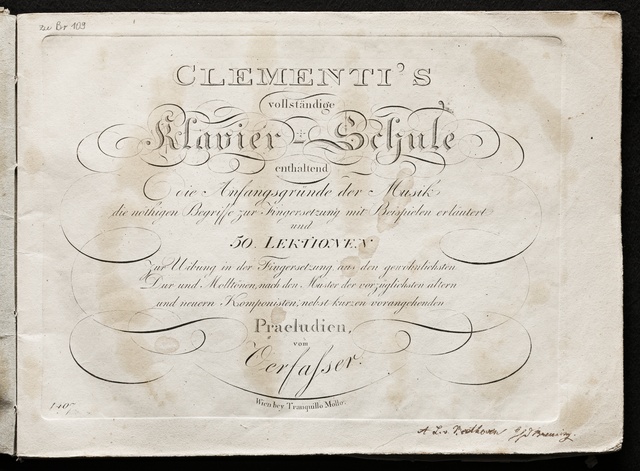 CLEMENTI'S
vollständige
Klavier-Schule
enthaltend
die Anfangsgründe der Musik,
die nöthigen Begriffe zur Fingersetzung mit Beispielen erläutert
und
50. LEKTIONEN
Zur Uibung in der Fingersetzung aus den gewöhnlichsten
Dur und Molltönen, nach den Muster der vorzüglichsten ältern
und neuern Komponisten, nebst kurzen vorangehenden
Praeludien,
vom
Verfasser.
Wien bey Tranquillo Mollo.
1407